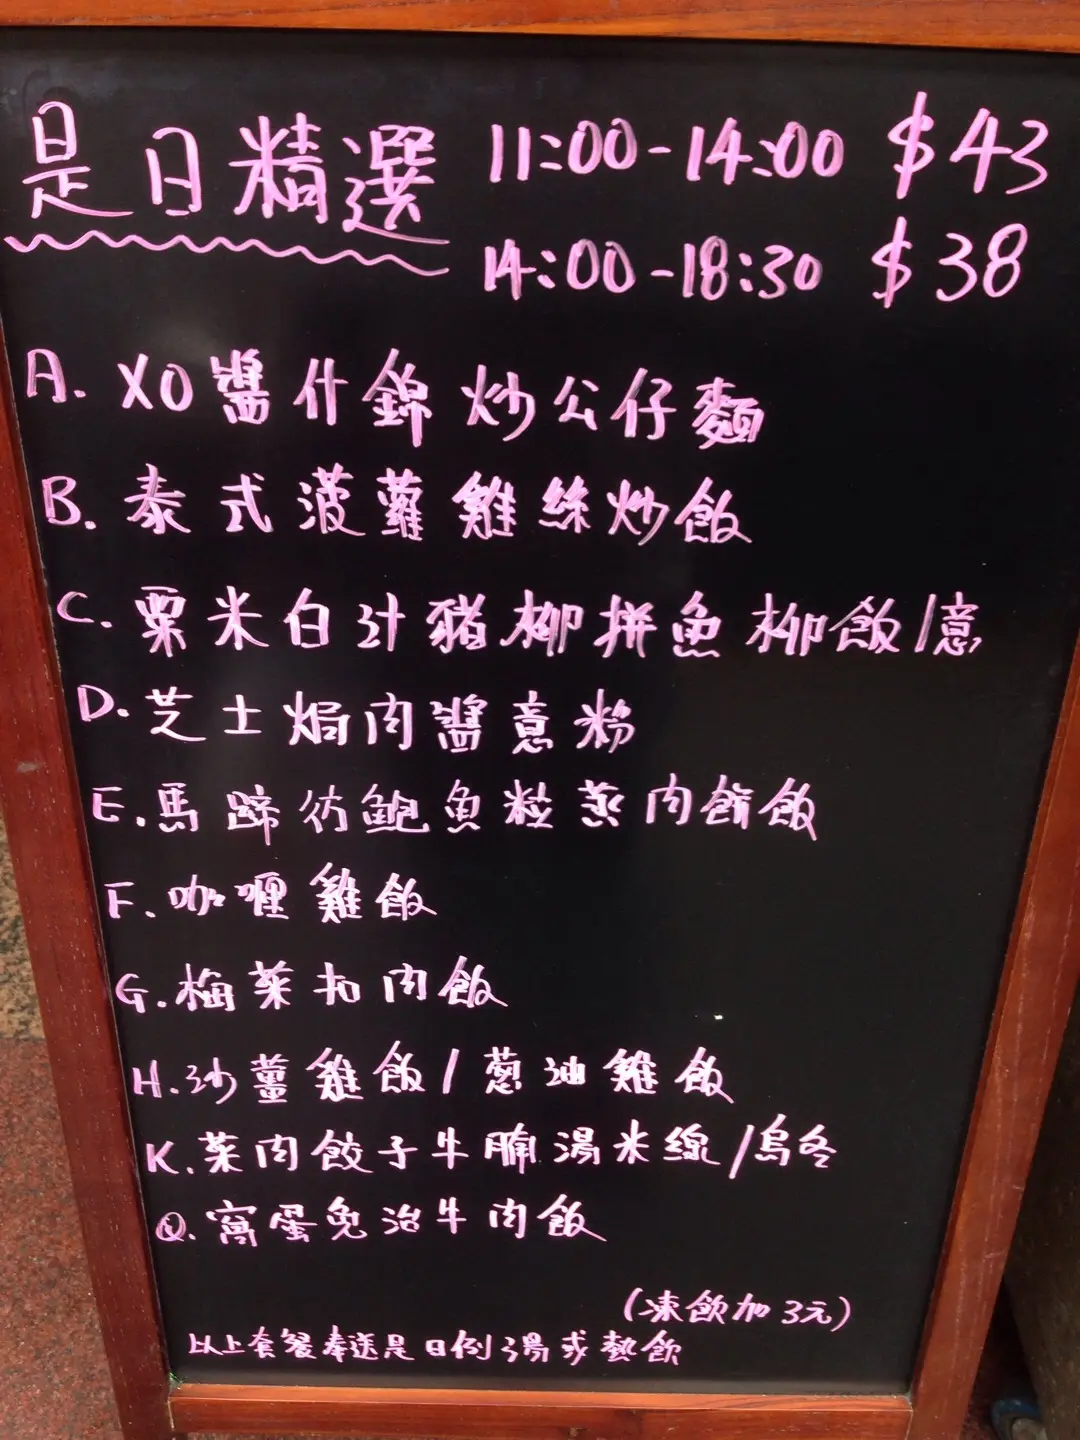 是日精選 11:00-14:00 $43
14:00-18:30 $38
A. XO醬什錦炒公仔麵
B. 泰式菠蘿雞絲炒飯
C. 粟米白汁豬柳拼魚柳飯/意
D. 芝士焗肉醬意粉
E. 馬蹄仿鮑魚粒蒸肉餅飯
F. 咖喱雞飯
G. 梅菜扣肉飯
H. 沙薑雞飯/蔥油雞飯
K. 菜肉餃子牛腩湯米線/烏冬
Q. 窩蛋免治牛肉飯
(凍飲加3元)
以上套餐奉送是日例湯或熱飲